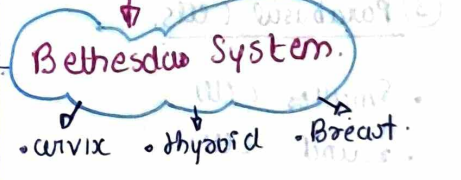 Bethesda System.
• cervix • thyroid • Breast.